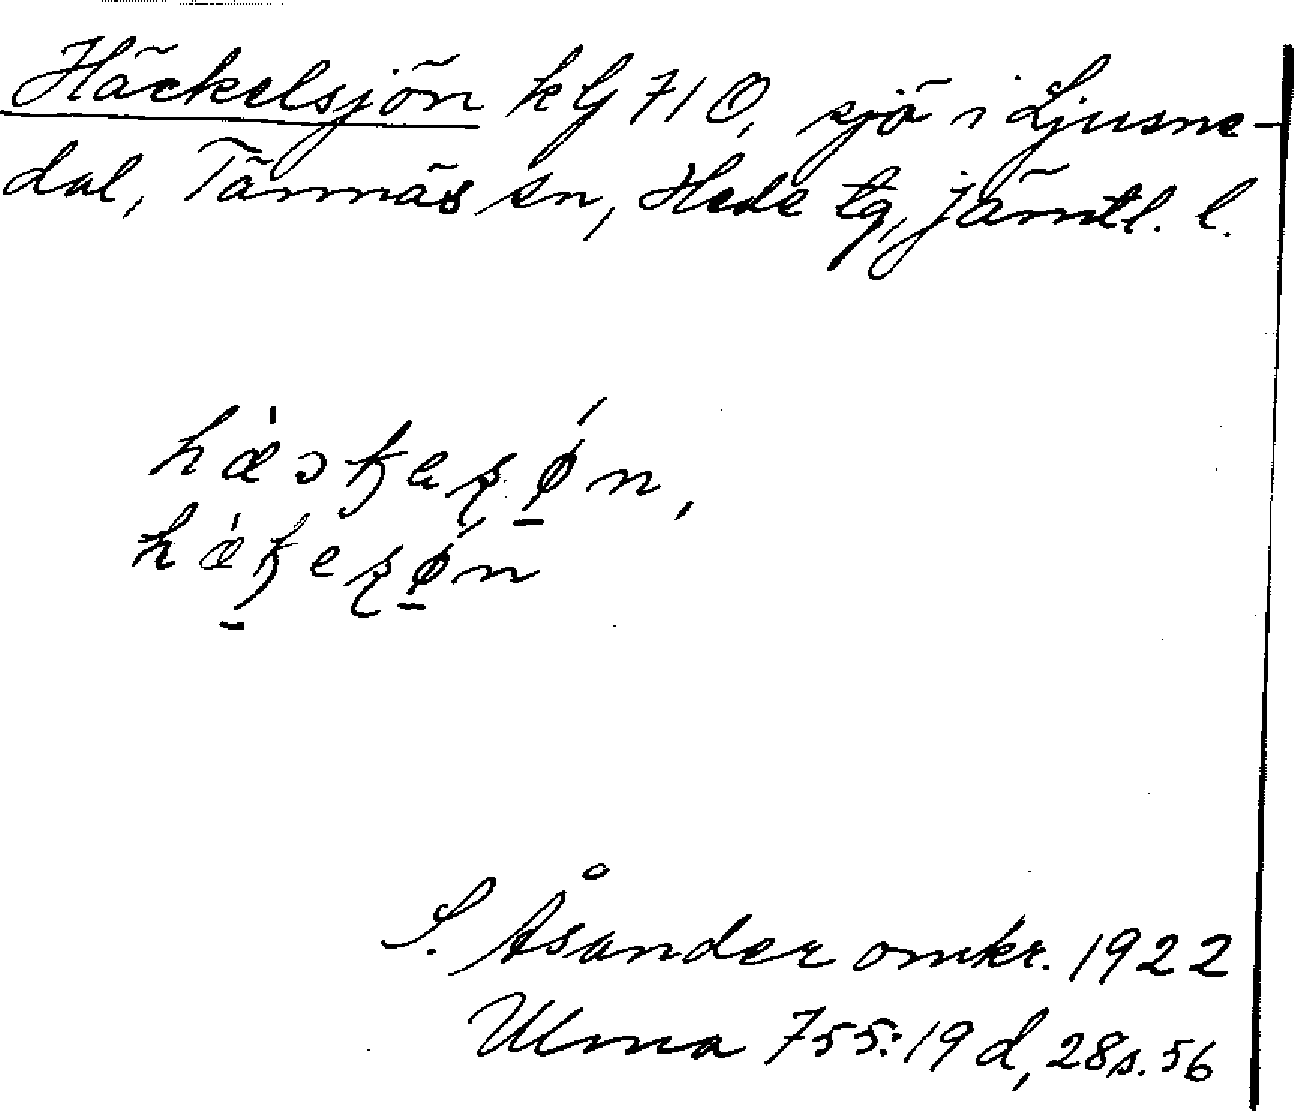 Häckelsjön kG 71 O, sjö i Ljusne-
dal, Tännäs sn, Hede tg, Jämtl. l.
S. Åsander omkr. 1922
Ulma 755:19 d, 28 s. 56